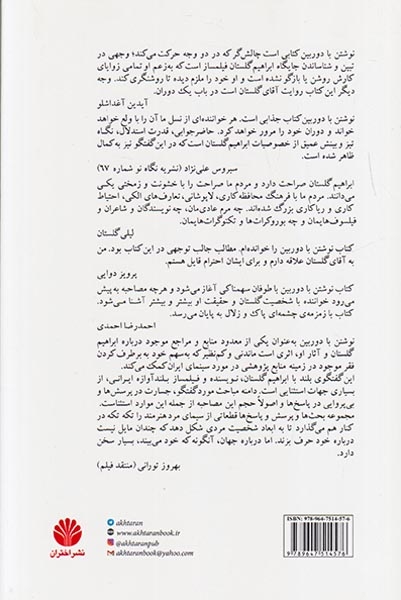 نوشتن با دوربین کتابی است چالش‌گر که در دو وجه حرکت می‌کند؛ وجهی در
تبیین و شناساندن جایگاه ابراهیم گلستان فیلمساز است که به‌زعم او تمامی زوایای
کارش روشن یا بازگو نشده است و او خود را ملزم دیده تا روشنگری کند. وجه
دیگر این کتاب روایت آقای گلستان است در باب یک دوران.
آیدین آغداشلو
نوشتن با دوربین کتاب جذابی است. هر خواننده‌ای از نسل ما آن را با ولع خواهد
خواند و دوران خود را مرور خواهد کرد. حاضرجوابی، قدرت استدلال، نگاه
تیز و بینش عمیق از خصوصیات ابراهیم گلستان است که در این گفتگو نیز به‌کمال
ظاهر شده است.
سیروس علی‌نژاد (نشریه نگاه نو شماره ۶۷)
ابراهیم گلستان صراحت دارد و مردم ما صراحت را با خشونت و زمختی یکی
می‌دانند. مردم ما با فرهنگ محافظه‌کاری، لاپوشانی، تعارف‌های الکی، احتیاط
کاری و ریاکاری بزرگ شده‌اند. چه مردم عادی‌مان، چه نویسندگان و شاعران و
فیلسوف‌هایمان و چه بوروکرات‌ها و تکنوکرات‌هایمان.
لیلی گلستان
کتاب نوشتن با دوربین را خوانده‌ام. مطالب جالب توجهی در این کتاب بود. من
به آقای گلستان علاقه دارم و برای ایشان احترام قایل هستم.
پرویز دوایی
کتاب نوشتن با دوربین با طوفان سهمناکی آغاز می‌شود و هرچه مصاحبه به پیش
می‌رود خواننده با شخصیت گلستان و حقیقت او بیشتر و بیشتر آشنا می‌شود.
کتاب با زمزمه‌ی چشمه‌ای پاک و زلال به پایان می‌رسد.
احمدرضا احمدی
نوشتن با دوربین به‌عنوان یکی از معدود منابع و مراجع موجود درباره ابراهیم
گلستان و آثار او، اثری است ماندنی و کم‌نظیر که به‌سهم خود به برطرف کردن
فقر موجود در زمینه منابع پژوهشی در مورد سینمای ایران کمک می‌کند.
این گفتگوی بلند با ابراهیم گلستان، نویسنده و فیلمساز بلندآوازه ایرانی، از
بسیاری جهات استثنایی است. دامنه مباحث مورد گفتگو، جسارت در پرسش‌ها و
بی‌پروایی در پاسخ‌ها و اصولاً حجم این مصاحبه از جمله این موارد استثناست.
مجموعه بحث‌ها و پرسش و پاسخ‌ها قطعاتی از سیمای مرد هنرمند را تکه تکه در
کنار هم می‌گذارد تا به ابعاد شخصیت مردی شکل دهد که چندان مایل نیست
درباره خود حرف بزند. اما درباره جهان، آنگونه که خود می‌بیند، بسیار سخن
دارد.
بهروز تورانی (منتقد فیلم)
نشر اختران
akhtaran
akhtaranbook.ir
@akhtaranpub
akhtaranbook@yahoo.com
ISBN: 978-964-7514-57-6
9 789647 514576